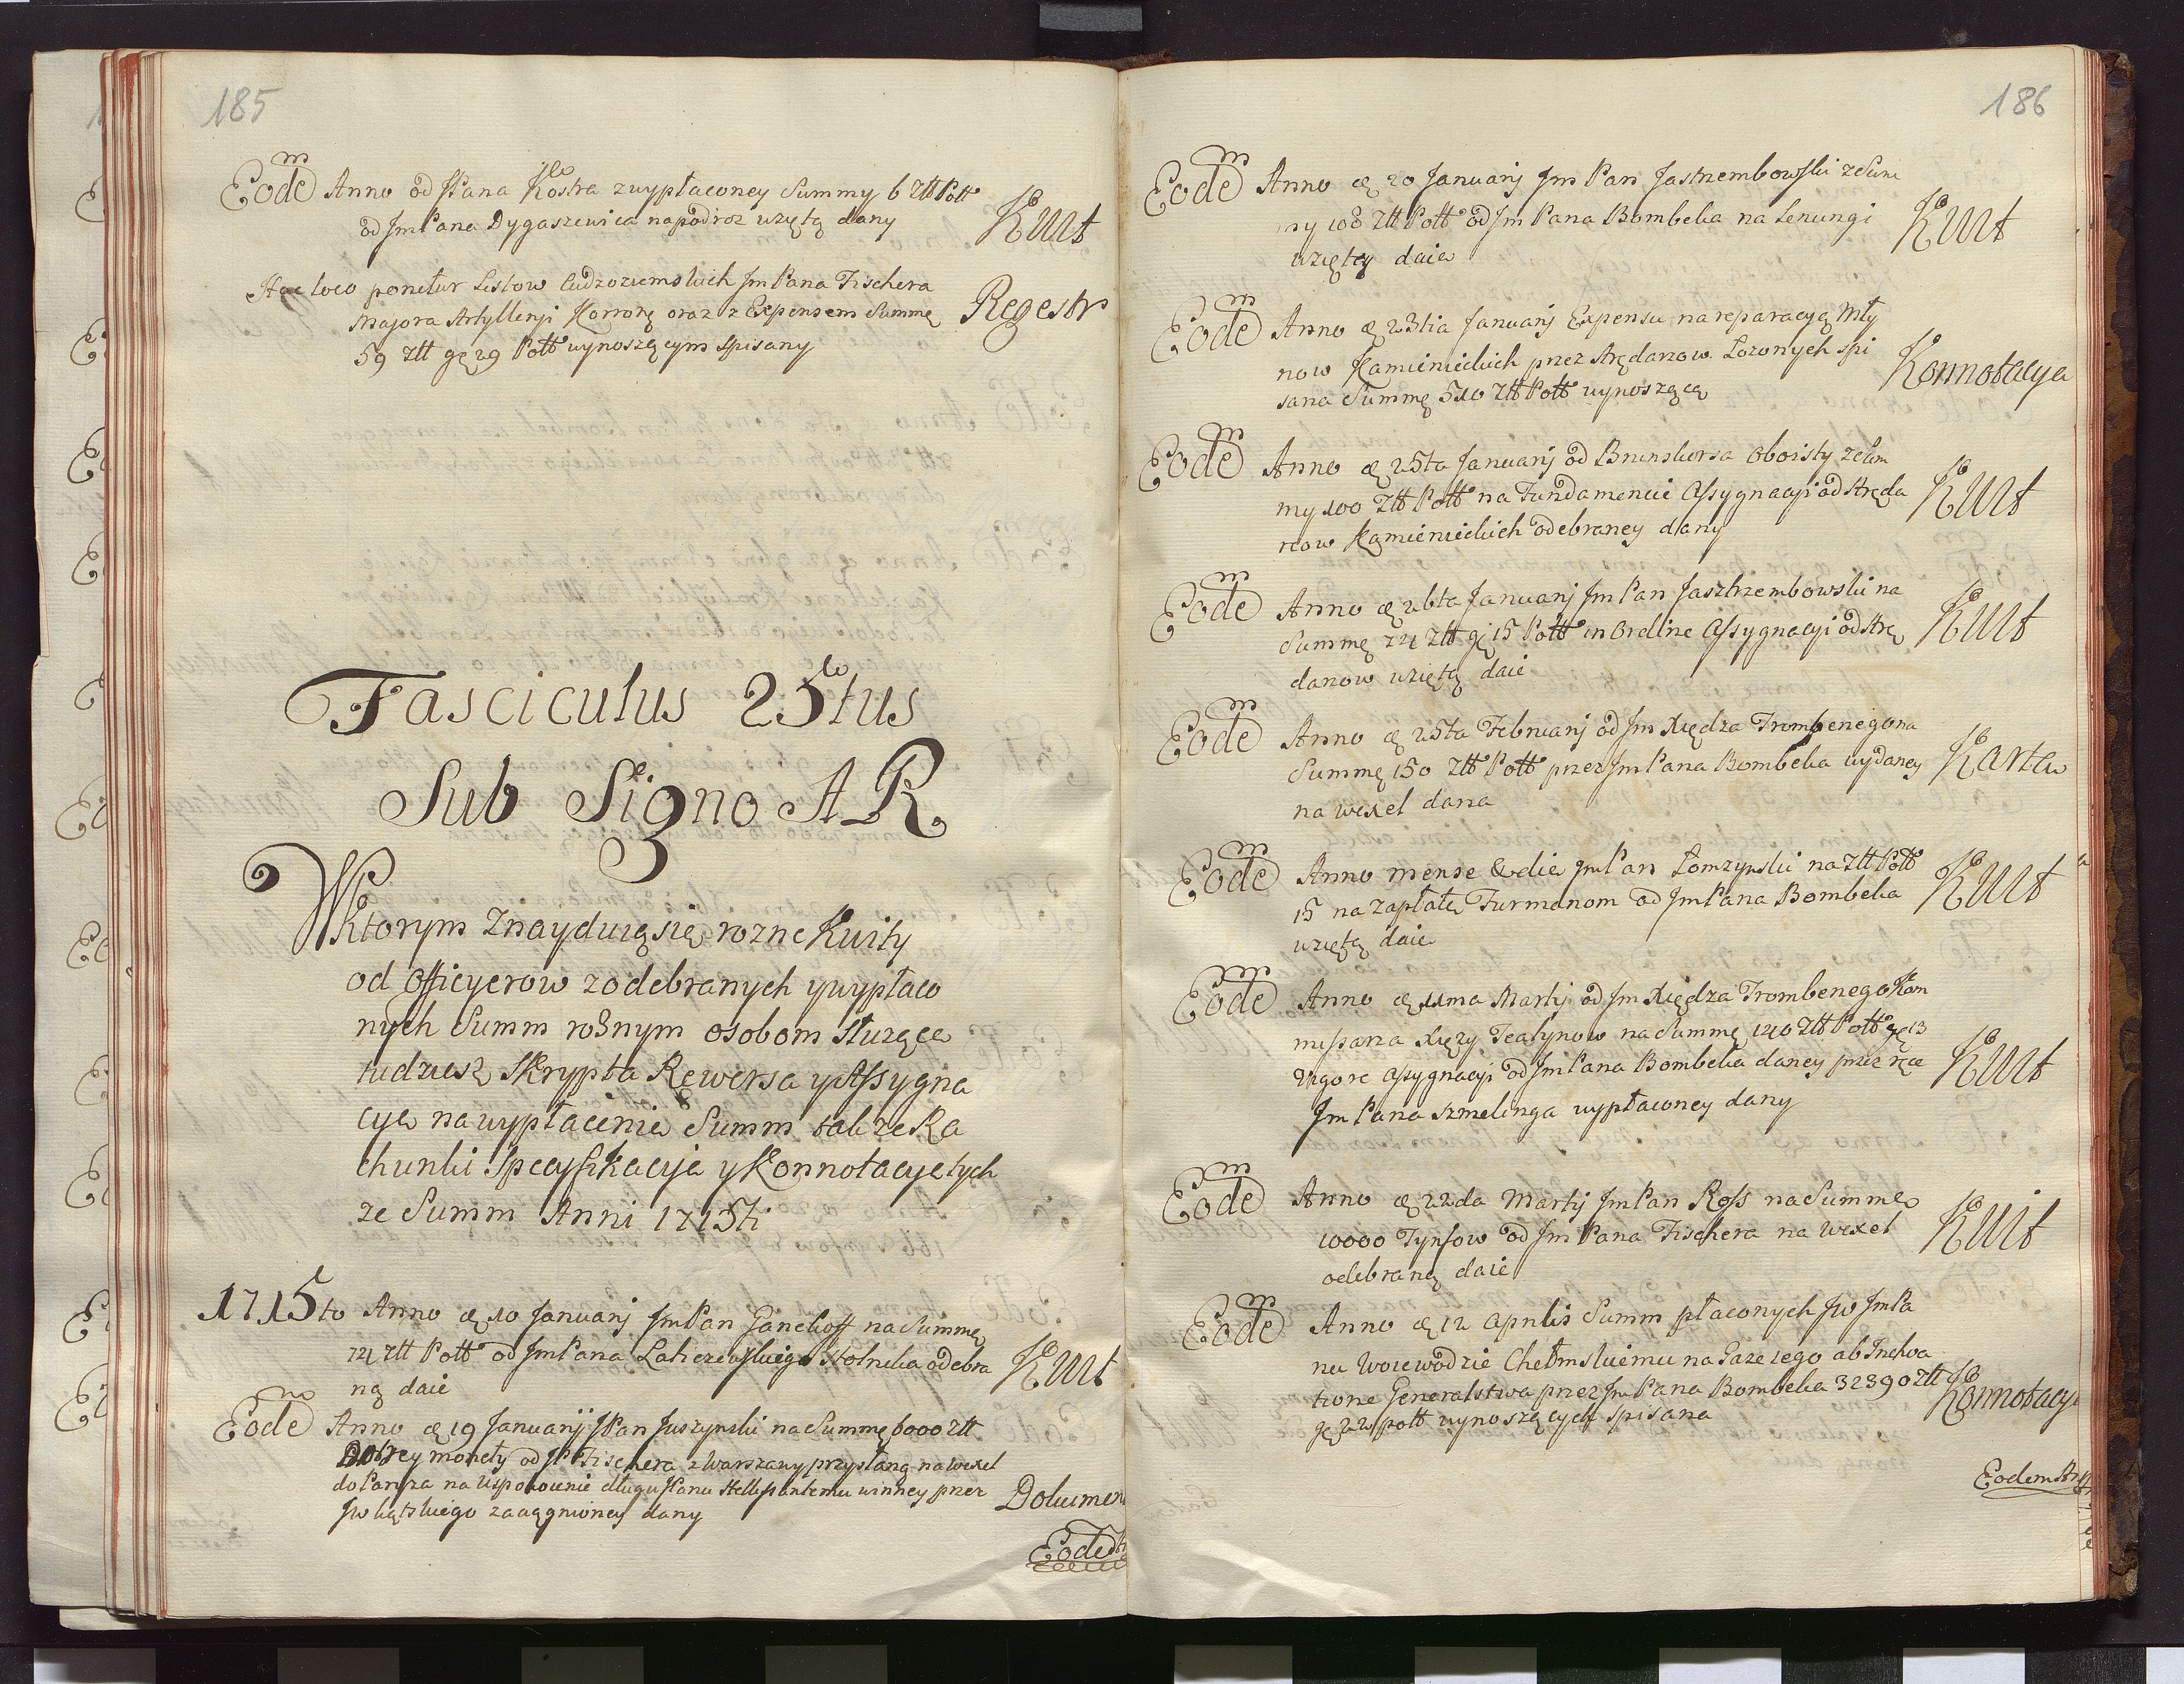 185
Eodem Anno od JPana Kostra z wypłaconey Summy 6 Złł Poll
od JmPana Dygaszewica na podroz wziętą dany Kwit
Hac loco ponetur Listow Cudzoziemskich JmPana Fischera
Majora Artyllerji Korronę oraz z Expensem Summę Regestr
59 złł gę 29 Poll wynoszęcym spisany
Fasciculus 25tus
Sub Signo AR
W Ktorym Znayduią się rozne Kwity
od Officyerow z odebranych y wypłaco
nych Summ rożnym osobom służące
tudziesz Skrypta Rewersa y Assygna
cye na wypłacenie Summ takze Ra
chunki Specyfikacye y Konnotacye tych
ze Summ Anni 1715ti
1715to Anno ę 10 Januarj JmPan Ganckoff na Summę
124 złł Poll od JmPana Lahczewskiego Stolnika odebra Kwit
ną daie
Eodem Anno ę 19 Januarij JPan Juszynski na Summę 6000 złł
Dobrey monety od JP Fischera z Warszawy przysłaną na wexel
do Paryza na Uspokoienie długu JPanu Hellisantemu winney przez Dokumen
JW Kątskiego zaciągnioney dany
Eodem
186
Eodem Anno ę 20 Januarj Jm Pan Jastrzembowski z Sum
my 108 Złł Poll od Jm Pana Bombeka na Lenungi Kwit
wziętey daie
Eodem Anno ę 23tia Januarj Expensu na reparacyą Mły
now Kamienieckich przez Arędarzow Lozonych spi Konnotacya
sana Summę 510 Złł Poll wynoszęcą
Eodem Anno ę 25ta Januarj od Brunskersa Oboisty z Sum
my 100 Złł Poll na Fundamencie Assygnacyi od Aręda Kwit
rzow Kamienieckich odebraney dany
Eodem Anno ę 26ta Januarj Jm Pan Jasztrzembowski na
Summę 724 Złł gę 15 Poll in Ordine Assygnacyi od Arę Kwit
darzow wziętą daie
Eodem Anno ę 25ta Februarj od Jm Xiędza Trombenegona
Summę 150 Złł Poll przez Jm Pana Bombeka wydaney Karta
na wexel dana
Eodem Anno mense & die JmPan Łomzynski na Złł Poll
15 na zapłatę Furmanom od JmPana Bombeka Kwit
wziętą daie
Eodem Anno ę 11ma Martij od Jm Xiędza Trombenego Kom
missarza Xięzy Teatynow na Summę 1240 Złł Poll gę 13
Vigore Assygnacyi od JmPana Bombeka daney przez ręce Kwit
Jm Pana Szmelinga wypłaconey dany
Eodem Anno ę 22da Martij JmPan Ross na Summę
10000 Tynfow od Jm Pana Fischera na Wexel Kwit
odebraną daie
Eodem Anno ę 12 Aprilis Summ płaconych JW JmPa
nu Woiewodzie Chełmskiemu na Gaze iego ab Inchoa
tione Generalstwa przez JmPana Bombeka 32390 złł Konnotacya
gę 22 poll wynoszęcych spisana
Eodem An